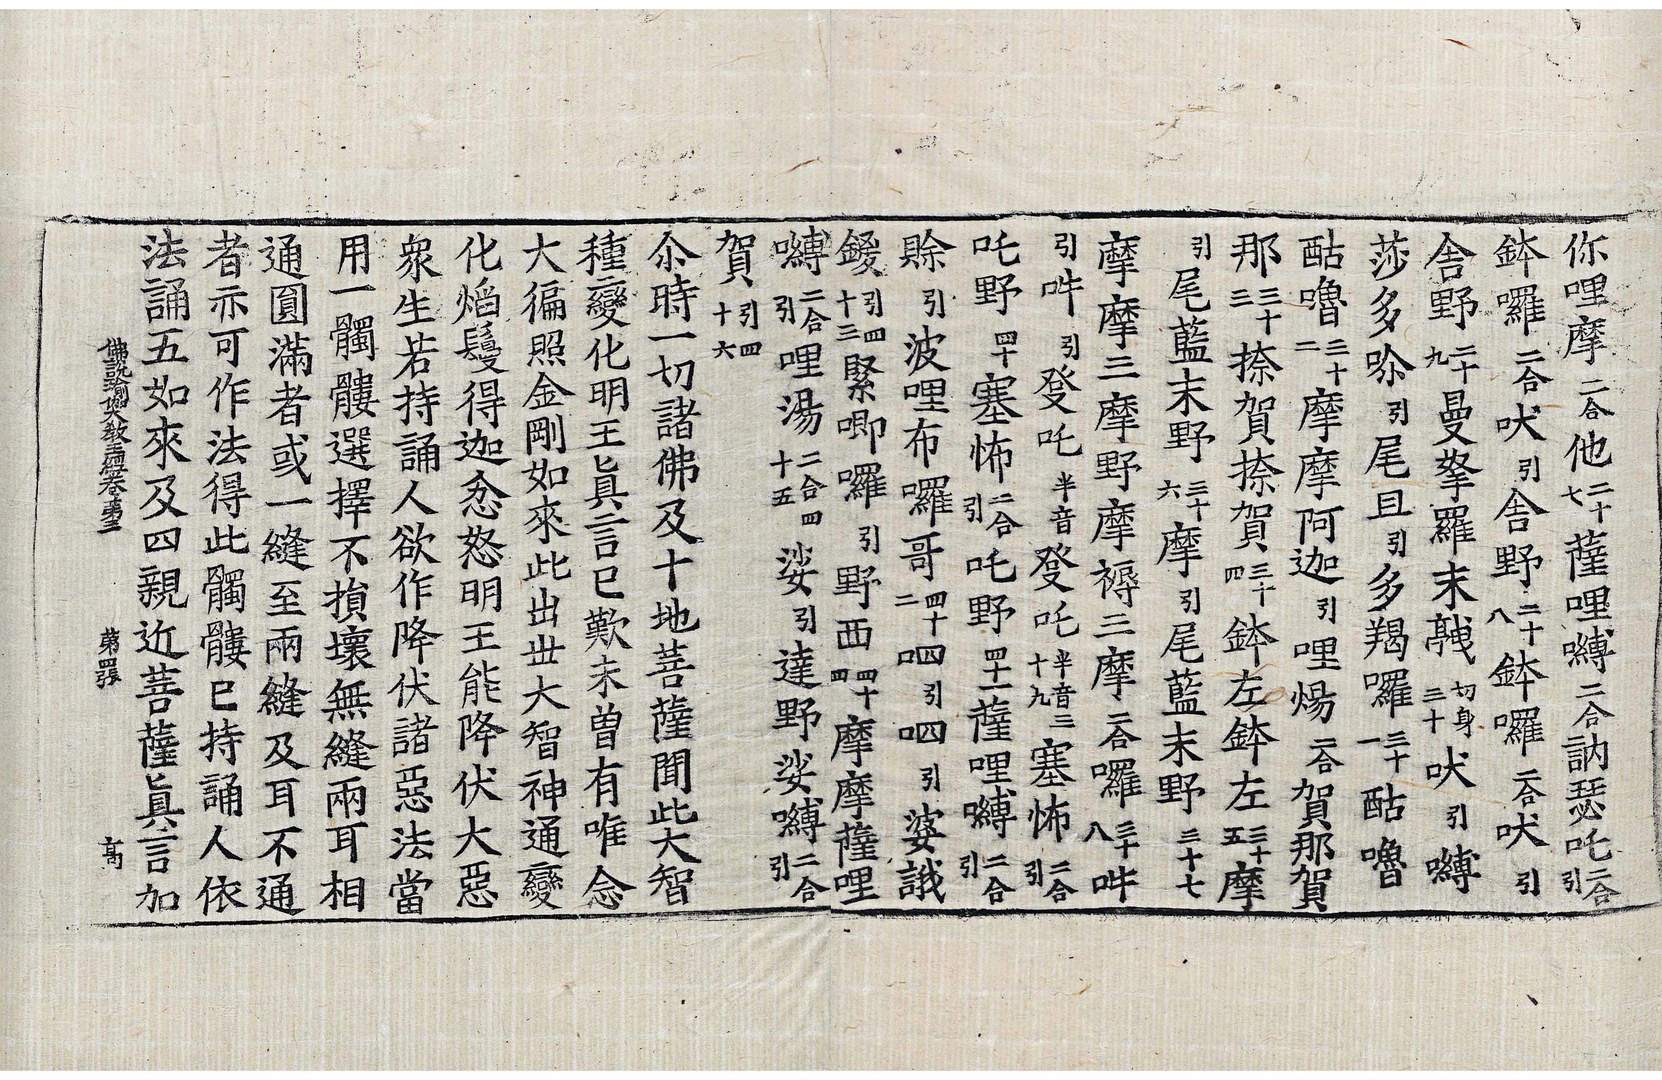 你哩摩二合他二十七薩哩嚩二合訥瑟吒二合引
鉢囉二合吠引舍野二十八鉢囉二合吠引
舍野二十九曼拏羅末𩕳切身三十吠引嚩
莎多唋引尾且引多羯囉三十一酤嚕
酤嚕三十二摩摩阿迦引哩煬二合賀那賀
那三十三捺賀捺賀三十四鉢左鉢左三十五摩
引尾藍末野三十六摩引尾藍末野三十七
摩摩三摩野摩褥三摩二合囉三十八吽
引吽引癹吒半音癹吒半音三十九塞怖二合引
吒野四十塞怖二合引吒野四十一薩哩嚩二合引
賒引波哩布囉哥四十二呬引呬引婆誐
鍐引四十三緊唧囉引野西四十四摩摩薩哩
嚩二合引哩湯二合四十五娑引達野娑嚩二合引
賀引四十六
尒時一切諸佛及十地菩薩聞此大智
種種變化明王眞言已歎未曾有唯念
大徧照金剛如來此出世大智神通變
化焰鬘得迦忿怒明王能降伏大惡
衆生若持誦人欲作降伏諸惡法當
用一髑髏選擇不損壞無縫兩耳相
通圓滿者或一縫至兩縫及耳不通
者亦可作法得此髑髏已持誦人依
法誦五如來及四親近菩薩眞言加
佛說瑜伽大敎王經卷第三 第四張 高